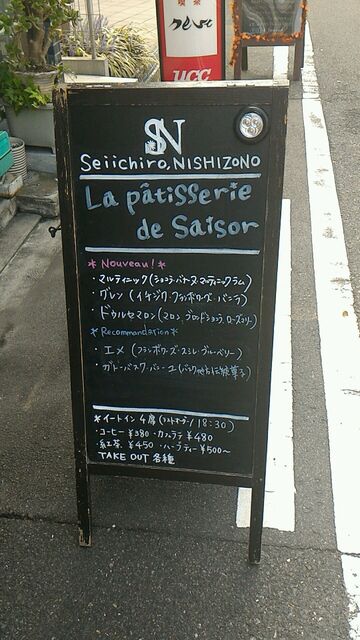 喫茶
UCC
SN
Seiichiro,NISHIZONO
La pâtisserie
de Saisor
*Nouveau!*
・マルティニック(ショコラ・バナーヌ・マルティニックラム)
・グレン(イチジク・フランボワーズ・バニラ)
・ドゥルセマロン(マロン、ブロンドショコラ、ローズマリー)
*Recommandation*
・エメ(フランボワーズ・スミレ・ブルーベリー)
・ガトー・バスク・バニーユ(バスク地方伝統菓子)
*イートイン 4席(ラストオーダー/18:30)
・コーヒー ¥380 ・カフェラテ ¥480
・紅茶 ¥450 ・ハーブティー ¥500~
TAKE OUT 各種